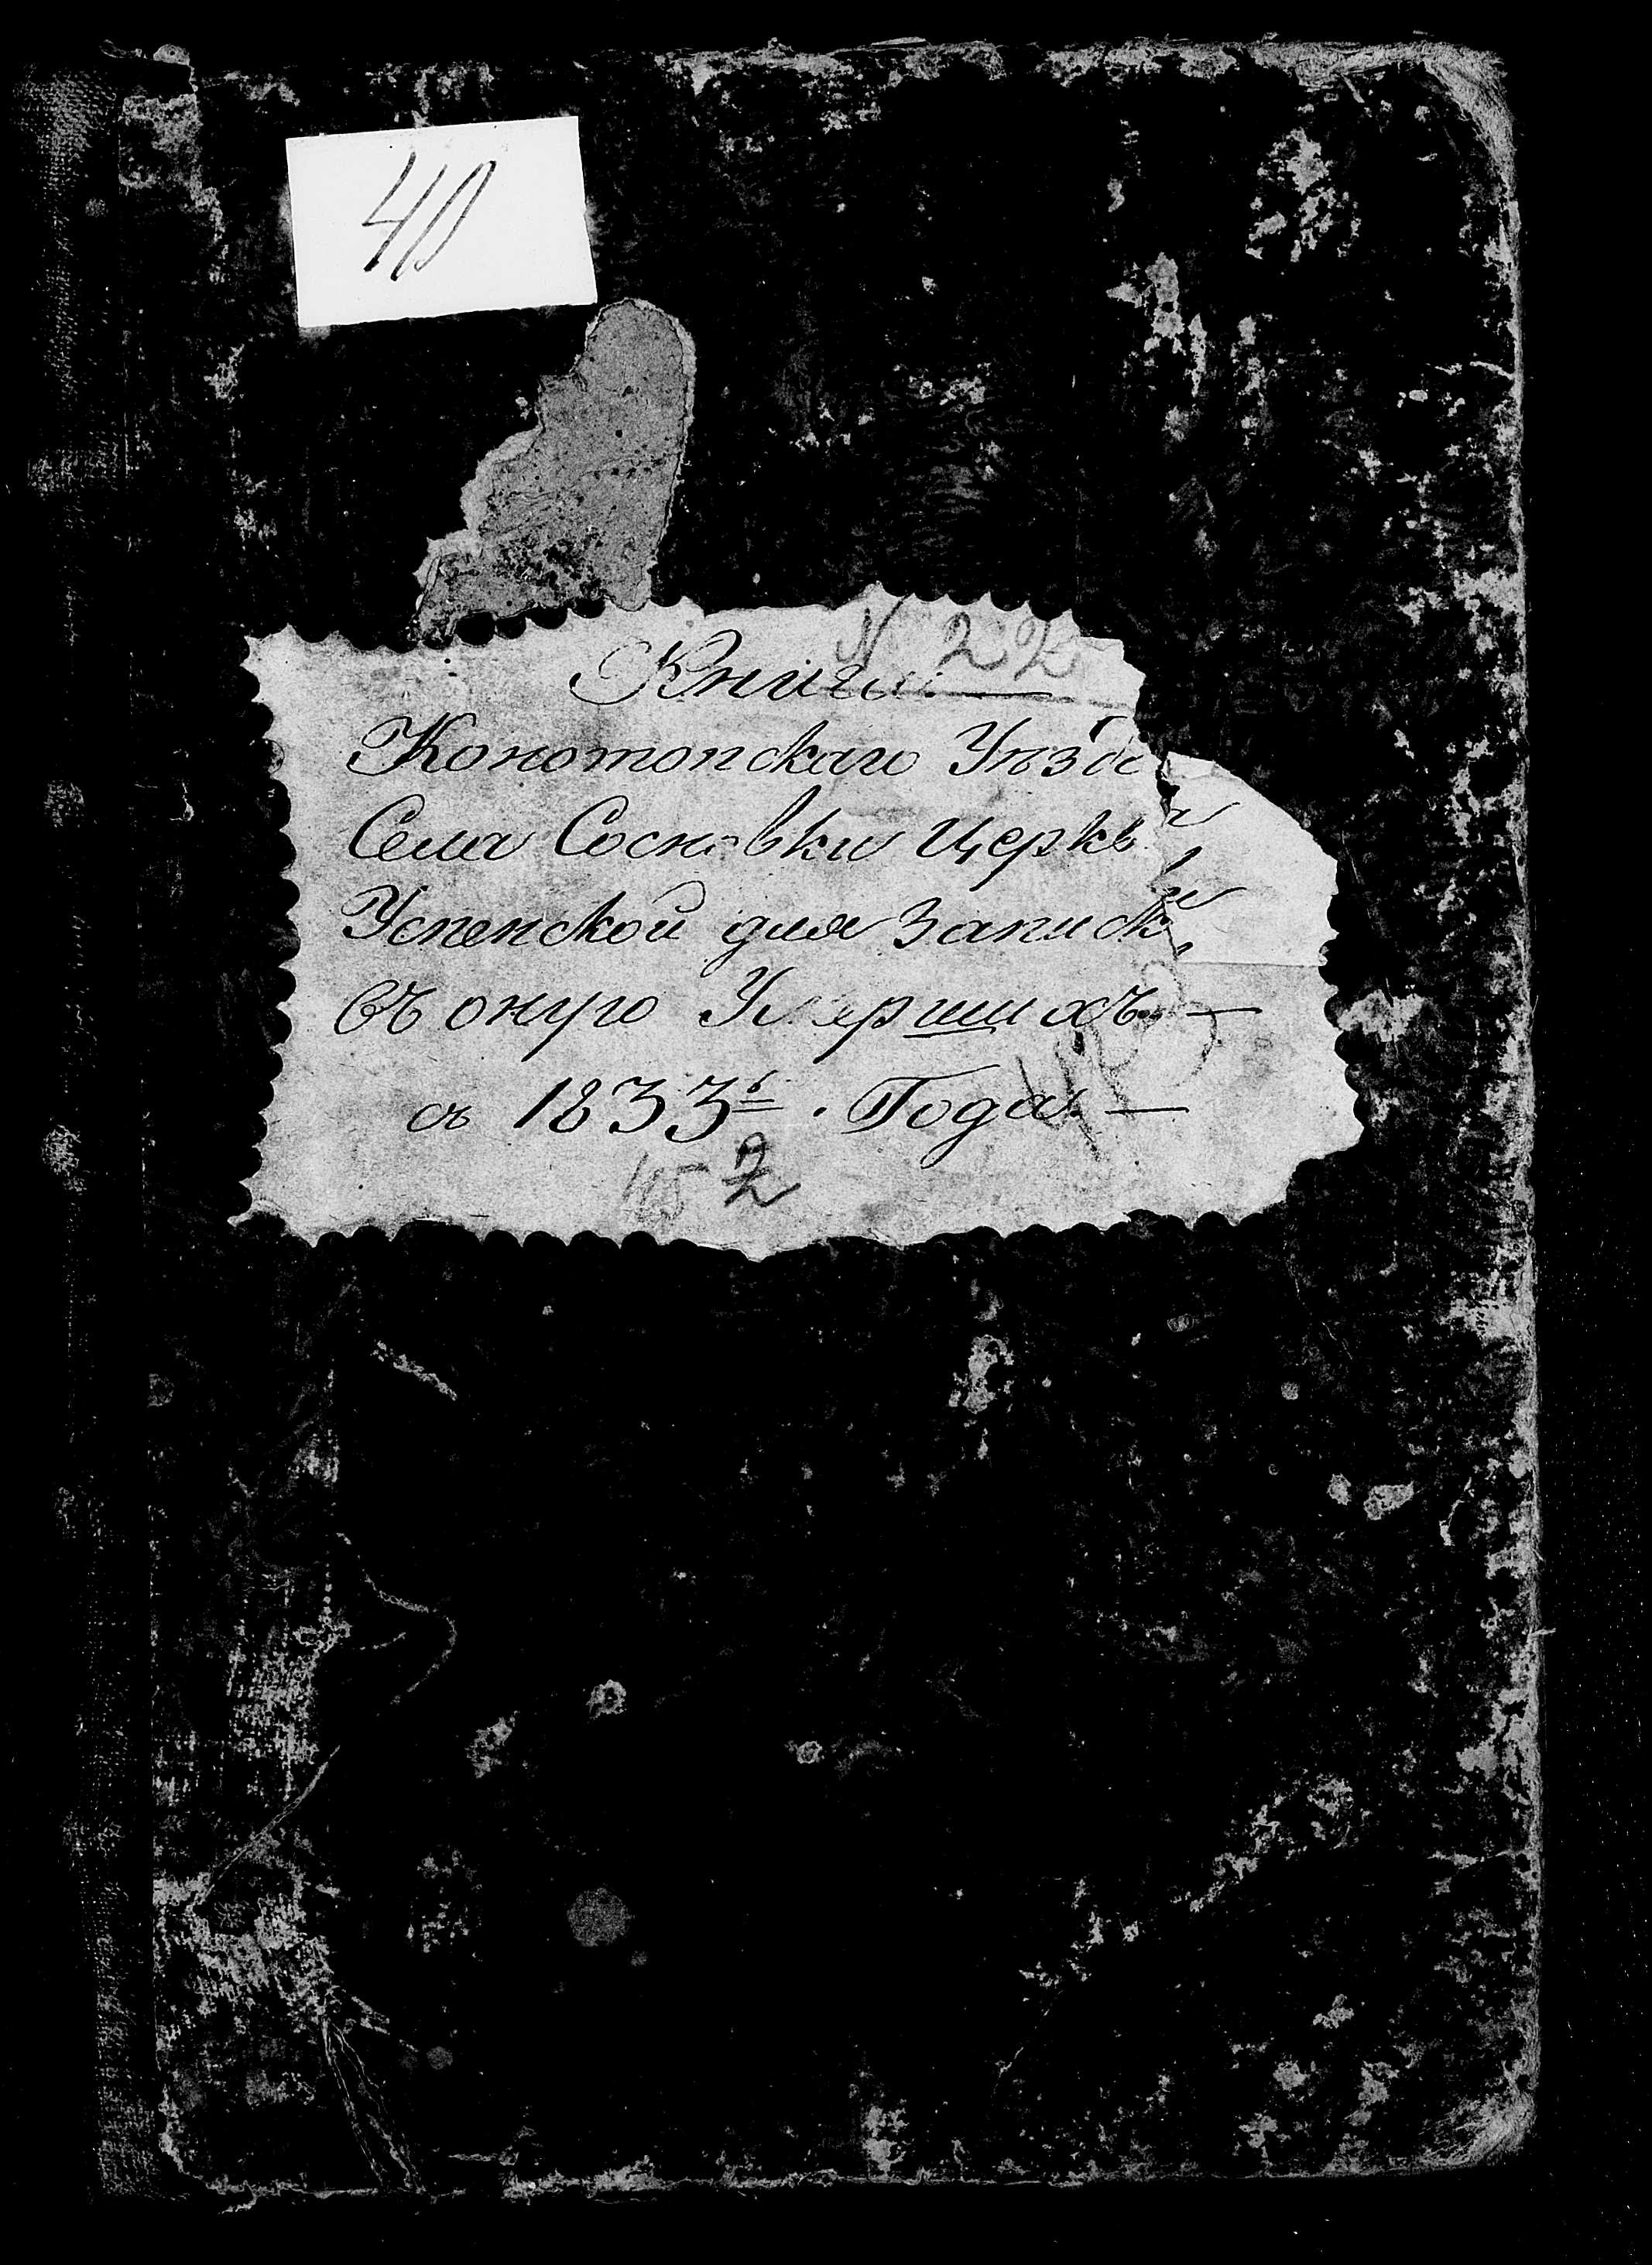 40
N 22
Книга
Конотопскаго Уѣзда
Села Сосновки Церкви
Успенской для Записки
въ оную Умершихъ —
съ 1833г. Года. —
2